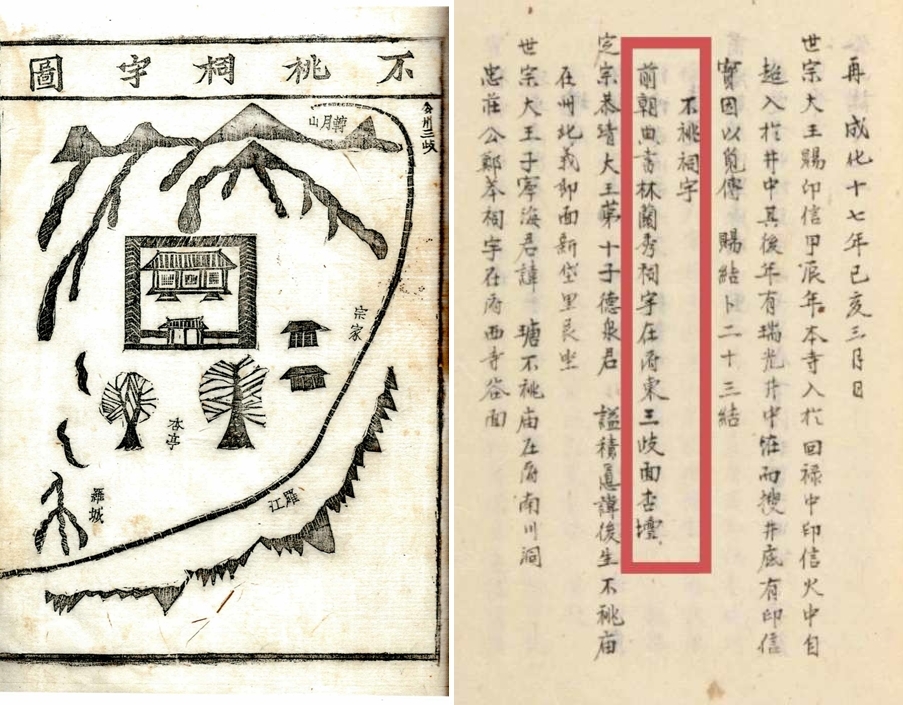 不祧祠宇圖
公州三岐
轉月山
宗家
杏亭
羅城
羅江
再成化十七年己亥三月日
世宗大王賜印信甲辰年本寺入於回祿中印信火中自
超入於井中其後年有瑞光井中怪而搜井底有印信
寶因以傳 賜結卜二十三結
不祧祠宇
前朝典書林蘭秀祠宇在府東三岐面杏壇
定宗恭靖大王第十子德泉君 謚積德諱後生不祧庙
在州北義郎面新垈里艮坐
世宗大王子寧海君諱 瑭不祧庙在府南川洞
忠莊公鄭苯祠宇在府西寺谷面